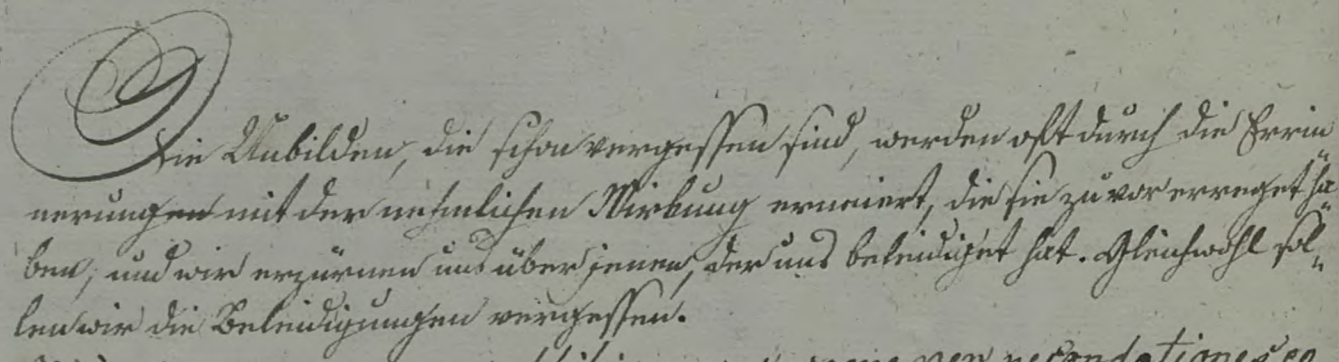 Die Unbilden, die schon vergessen sind, werden oft durch die Errin
nerungen mit der nehmlichen Wirkung erneuert, die sie zuvor erreget ha„
ben, und wir erzürnen uns über jenen, der uns beleidiget hat. Gleichwohl sol„
len wir die Beleidigungen vergessen.